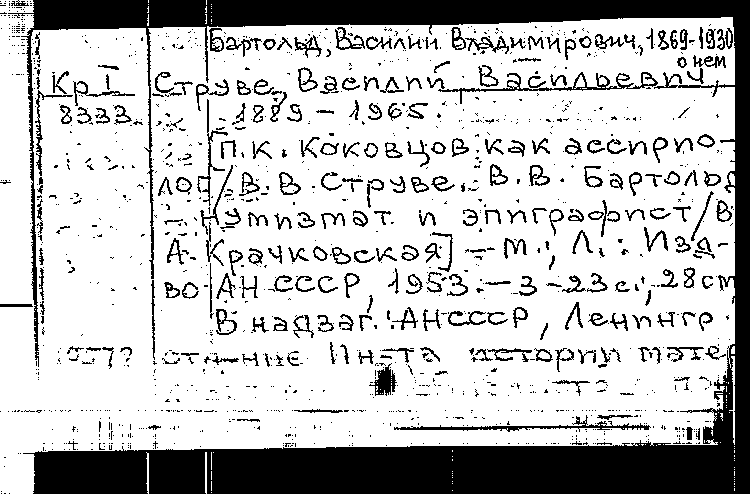 Бартольд, Василий Владимирович, 1869-1930
о нем
Кр I Струве, Василий Васильевич,
8333 1889 – 1965.
[П. К. Коковцов как ассирио-
лог / В. В. Струве. В. В. Бартольд
– нумизмат и эпиграфист / В.
А. Крачковская] – М.; Л.: Изд-
во АН СССР, 1953. – 3–23 с.; 28 см
В надзаг.: АН СССР, Ленингр.
отд-ние Ин-та истории мате